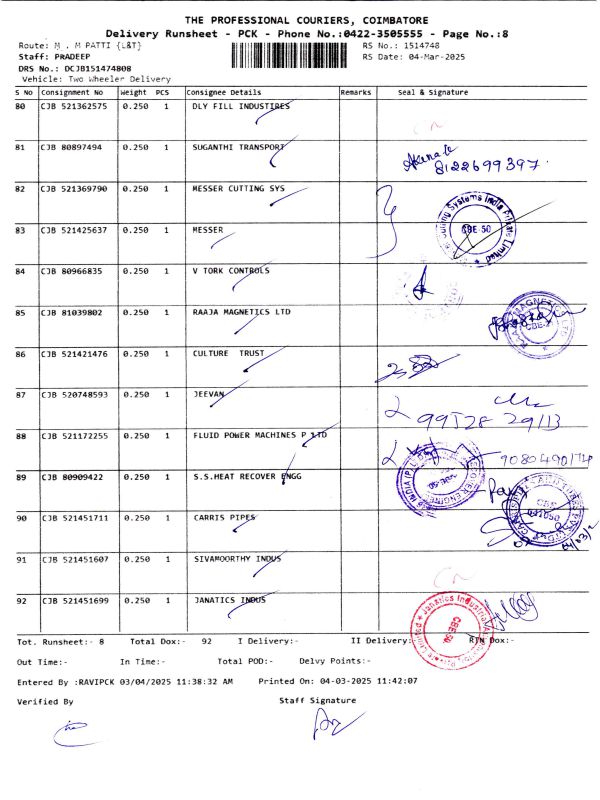 THE PROFESSIONAL COURIERS, COIMBATORE
Delivery Runsheet - PCK - Phone No.:0422-3505555 - Page No.:8
Route: M . M PATTI {L&T} RS No.: 1514748
Staff: PRADEEP RS Date: 04-Mar-2025
DRS No.: DCJB151474808
Vehicle: Two Wheeler Delivery
S No Consignment No Weight PCS Consignee Details Remarks Seal & Signature
80 CJB 521362575 0.250 1 DLY FILL INDUSTIRES
81 CJB 80897494 0.250 1 SUGANTHI TRANSPORT
8122699397
82 CJB 521369790 0.250 1 MESSER CUTTING SYS
83 CJB 521425637 0.250 1 MESSER CBE-50
84 CJB 80966835 0.250 1 V TORK CONTROLS
85 CJB 81039802 0.250 1 RAAJA MAGNETICS LTD
86 CJB 521421476 0.250 1 CULTURE TRUST
87 CJB 520748593 0.250 1 JEEVAN
99528 29113
88 CJB 521172255 0.250 1 FLUID POWER MACHINES P LTD
89 CJB 80909422 0.250 1 S.S.HEAT RECOVER ENGG
90 CJB 521451711 0.250 1 CARRIS PIPES
91 CJB 521451607 0.250 1 SIVAMOORTHY INDUS
92 CJB 521451699 0.250 1 JANATICS INDUS
Tot. Runsheet:- 8 Total Dox:- 92 I Delivery:- II Delivery:- RTN Dox:-
Out Time:- In Time:- Total POD:- Delvy Points:-
Entered By :RAVIPCK 03/04/2025 11:38:32 AM Printed On: 04-03-2025 11:42:07
Verified By Staff Signature